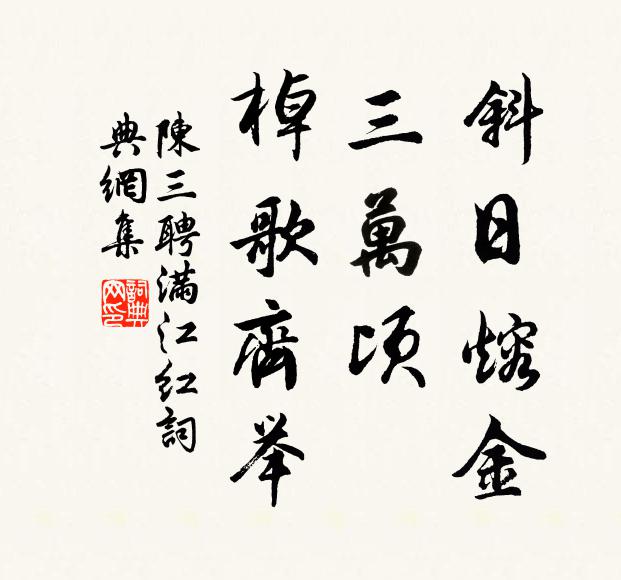 斜日熔金
三萬頃
棹歌齊举
陳三聘满江红詞
典網集
詞典网印